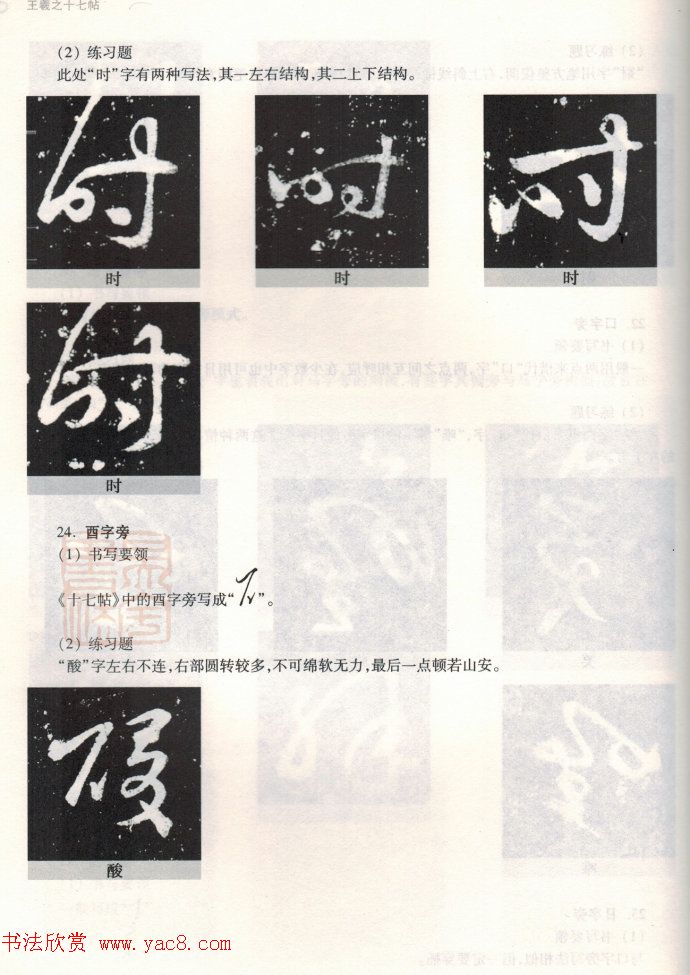 王羲之十七帖
(2) 练习题
此处“时”字有两种写法，其一左右结构，其二上下结构。
时 时 时
时
24. 酉字旁
(1) 书写要领
《十七帖》中的酉字旁写成“ ”。
(2) 练习题
“酸”字左右不连，右部圆转较多，不可绵软无力，最后一点顿若山安。
酸
书法欣赏 www.yac8.com